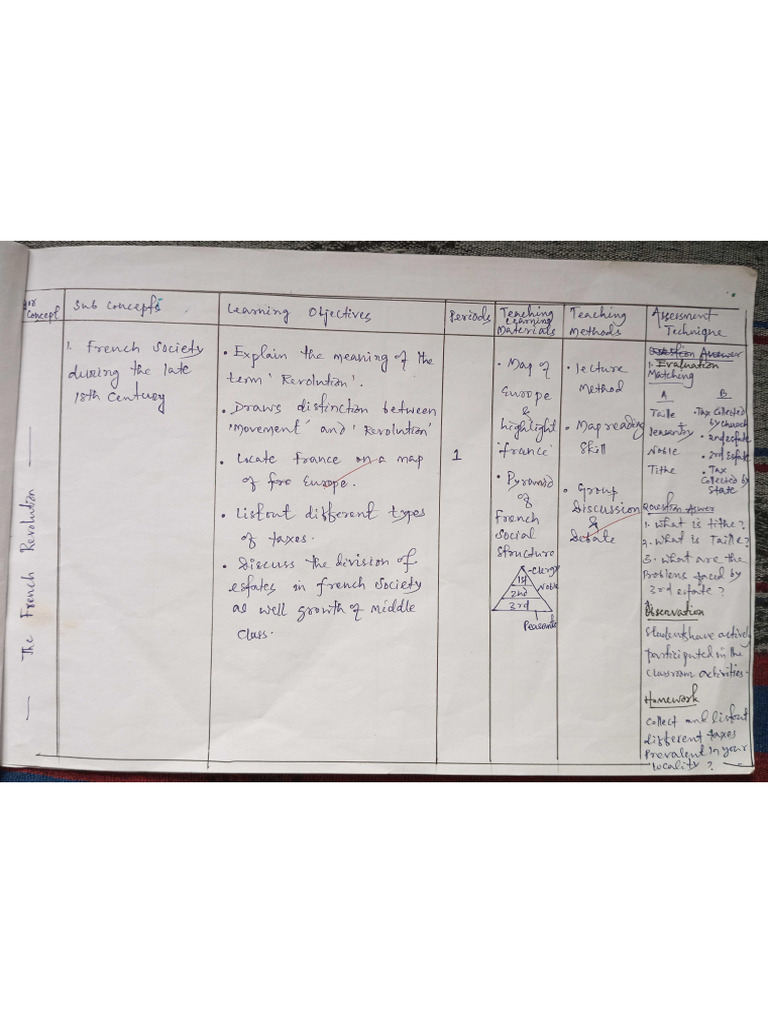 Concept
Sub Concepts
Learning Objectives
Periods
Teaching
Learning
Materials
Teaching
Methods
Assessment
Technique
The French Revolution
1. French Society
during the late
18th Century
• Explain the meaning of the
term 'Revolution'.
• Draws distinction between
'movement' and 'Revolution'
• Locate France on a map
of Europe.
• Listout different types
of taxes.
• Discuss the division of
estates in french society
as well growth of middle
class.
1
• Map of
Europe
&
highlight
'france'
• Pyramid
of
French
Social
Structure
1st
2nd
3rd
Clergy
Noble
Peasants
• lecture
Method
• Map reading
Skill
• Group
Discussion
&
Debate
Question Answer
1. Evaluation
Matching
A B
Taille • Tax Collected
by church
Peasantry • 2nd Estate
Noble • 3rd Estate
Tithe • Tax
Collected by
State
Question Answer
1. What is tithe?
2. What is Taille?
3. What are the
Problems faced by
3rd estate?
Observation
Students have actively
participated in the
classroom activities.
Homework
Collect and listout
different taxes
Prevalent in your
locality?